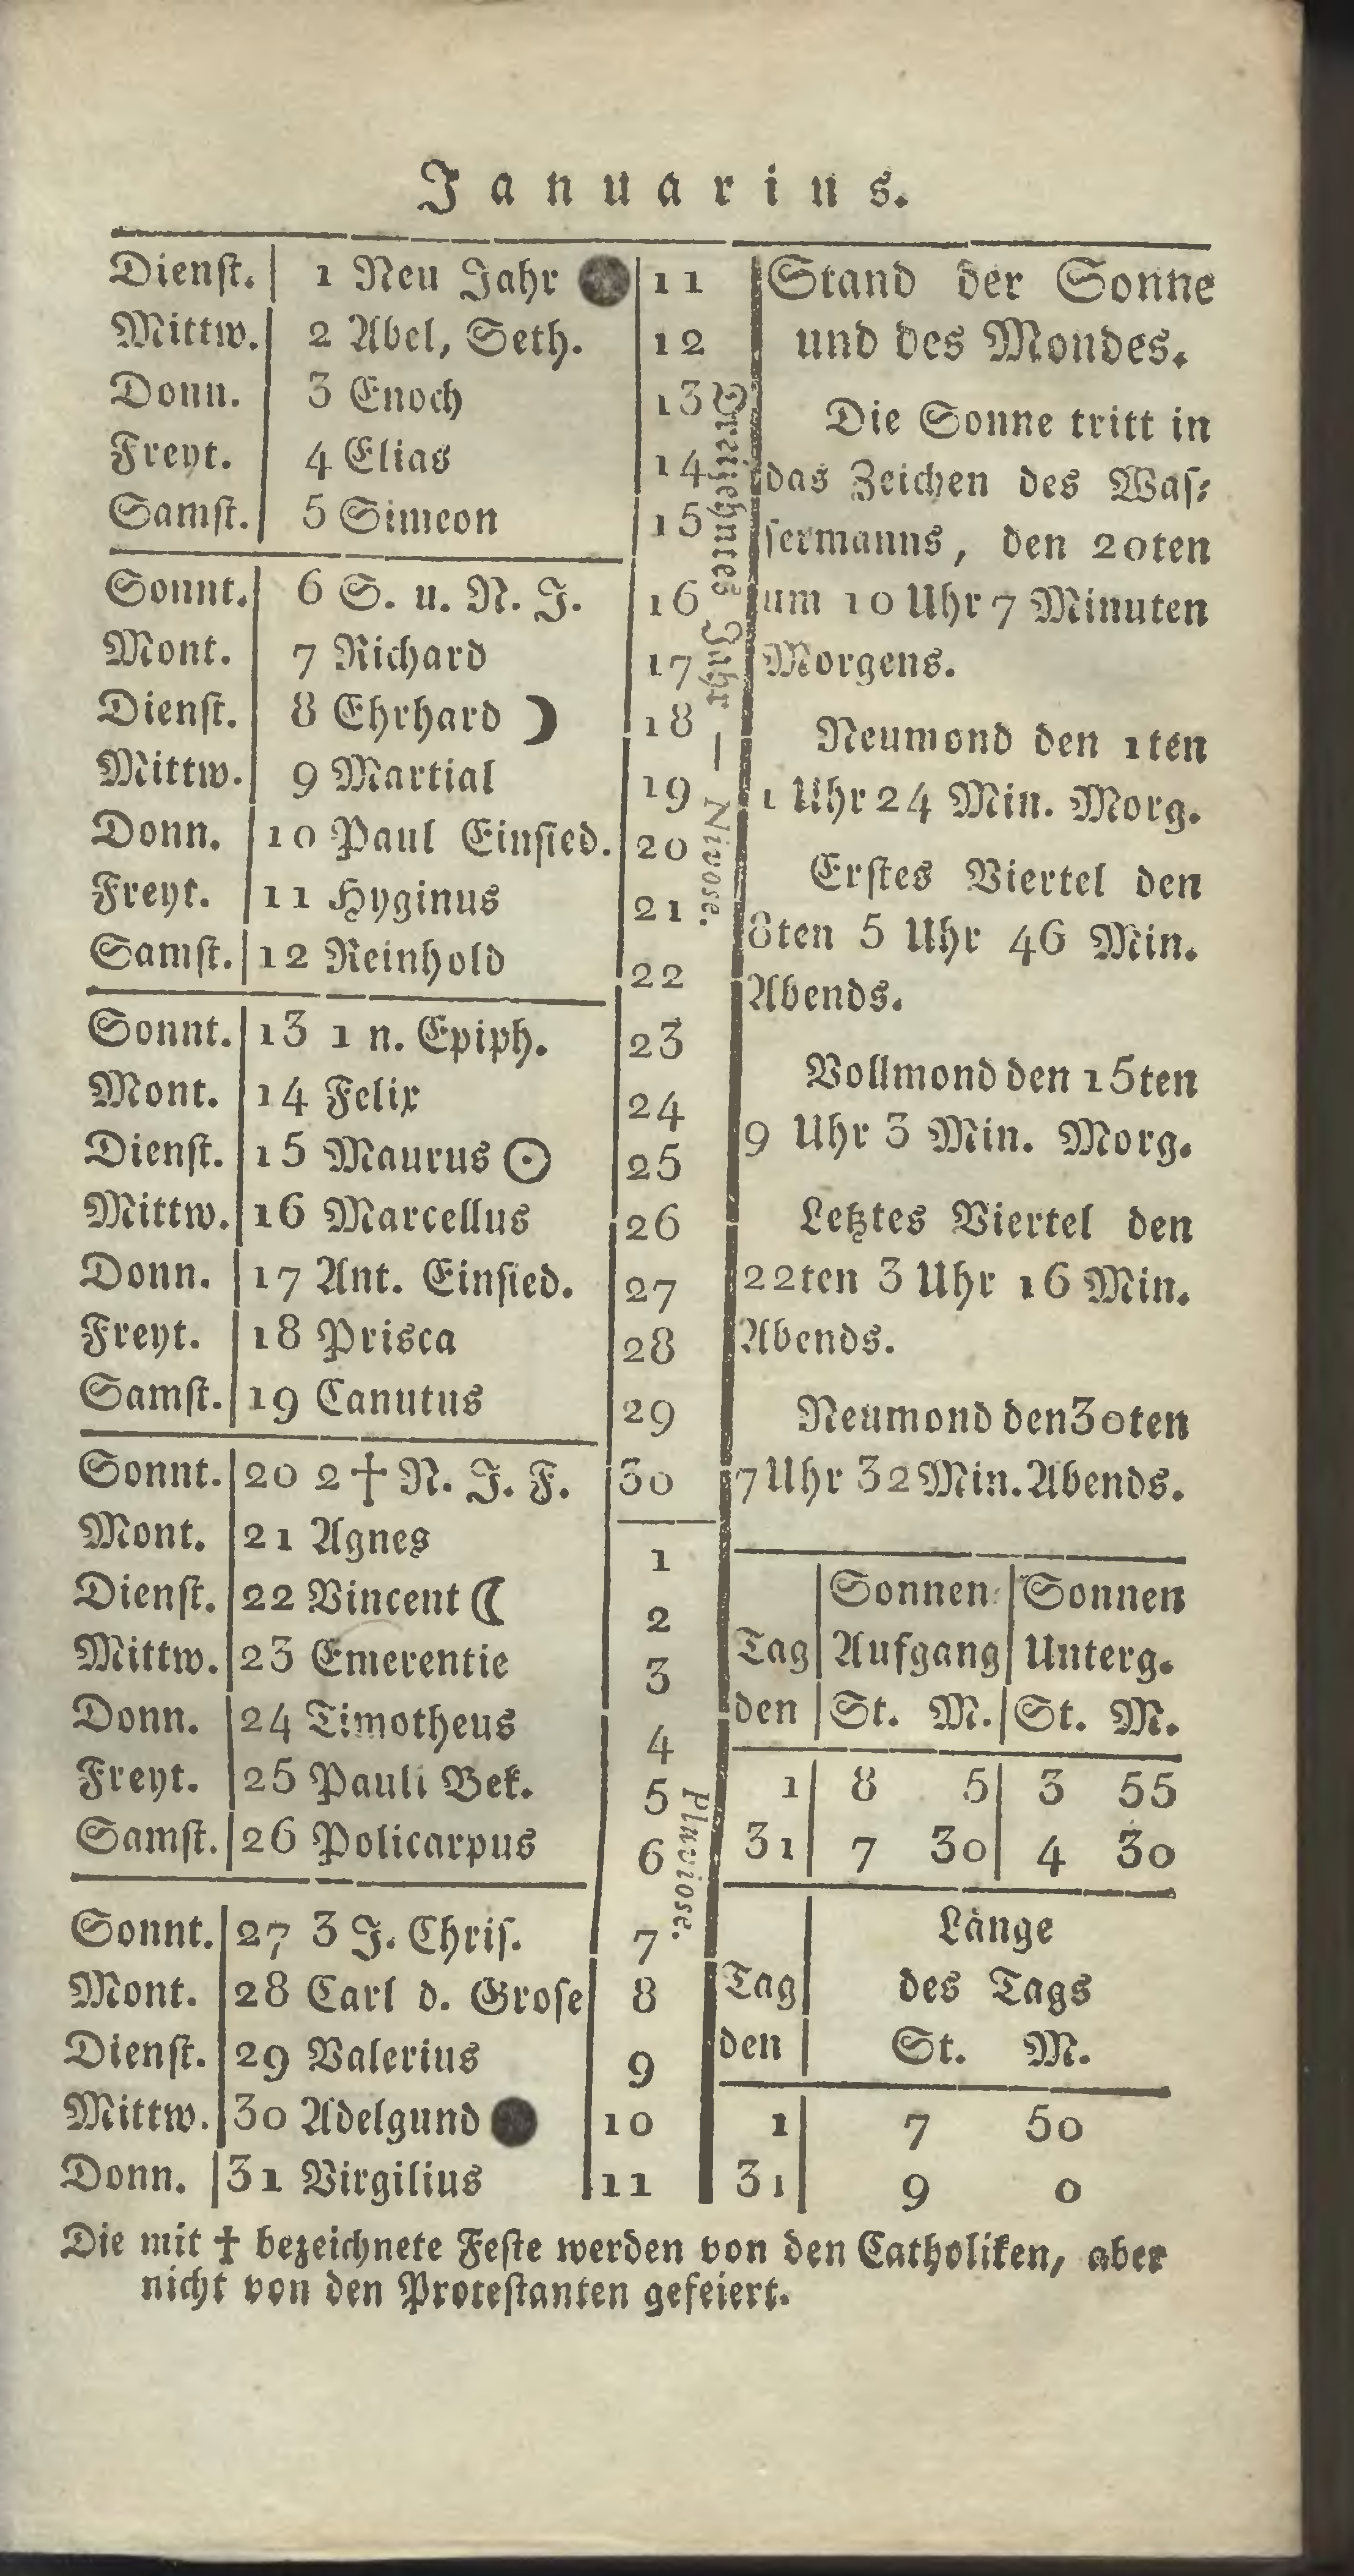 Januarius.
Dienſt. 1 Neu Jahr ● 11
Mittw. 2 Abel, Seth. 12
Donn. 3 Enoch 13
Freyt. 4 Elias 14
Samſt. 5 Simeon 15
Sonnt. 6 S. u. N. J. 16
Mont. 7 Richard 17
Dienſt. 8 Ehrhard ☽ 18
Mittw. 9 Martial 19
Donn. 10 Paul Einſied. 20
Freyt. 11 Hyginus 21
Samſt. 12 Reinhold 22
Sonnt. 13 1 n. Epiph. 23
Mont. 14 Felix 24
Dienſt. 15 Maurus ☉ 25
Mittw. 16 Marcellus 26
Donn. 17 Ant. Einſied. 27
Freyt. 18 Prisca 28
Samſt. 19 Canutus 29
Sonnt. 20 2 † N. J. F. 30
Mont. 21 Agnes 1
Dienſt. 22 Vincent ☾ 2
Mittw. 23 Emerentie 3
Donn. 24 Timotheus 4
Freyt. 25 Pauli Bek. 5
Samſt. 26 Policarpus 6
Sonnt. 27 3 J. Chriſ. 7
Mont. 28 Carl d. Groſe 8
Dienſt. 29 Valerius 9
Mittw. 30 Adelgund ● 10
Donn. 31 Virgilius 11
Dreizehntes Jahr — Nivose.
Pluviose.
Stand der Sonne
und des Mondes.
Die Sonne tritt in
das Zeichen des Waſ⸗
ſermanns, den 20ten
um 10 Uhr 7 Minuten
Morgens.
Neumond den 1ten
1 Uhr 24 Min. Morg.
Erſtes Viertel den
8ten 5 Uhr 46 Min.
Abends.
Vollmond den 15ten
9 Uhr 3 Min. Morg.
Letztes Viertel den
22ten 3 Uhr 16 Min.
Abends.
Neumond den 30ten
7 Uhr 32 Min. Abends.
Sonnen Sonnen
Tag Aufgang Unterg.
den St. M. St. M.
1 8 5 3 55
31 7 30 4 30
Länge
Tag des Tags
den St. M.
1 7 50
31 9 0
Die mit † bezeichnete Feſte werden von den Catholiken, aber
nicht von den Proteſtanten gefeiert.